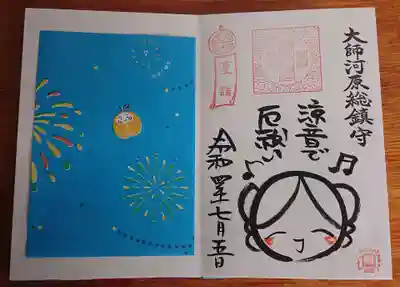 大師河原総鎮守
涼音で
厄祓い
夏詣
令和四年七月五日